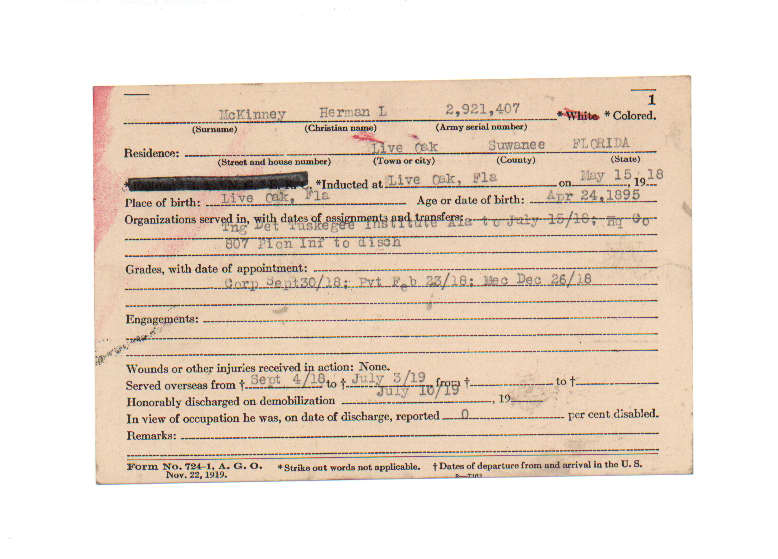 1
McKinney Herman L 2,921,407 * White * Colored.
(Surname) (Christian name) (Army serial number)
Residence: Live Oak Suwanee FLORIDA
(Street and house number) (Town or city) (County) (State)
*Inducted at Live Oak, Fla on May 15, 1918
Place of birth: Live Oak, Fla Age or date of birth: Apr 24,1895
Organizations served in, with dates of assignments and transfers:
Tng Det Tuskegee Institute Ala to July 15/18; Hq Co
807 Pion Inf to disch
Grades, with date of appointment:
Corp Sept30/18; Pvt Feb 23/18; Mec Dec 26/18
Engagements:
Wounds or other injuries received in action: None.
Served overseas from † Sept 4/18 to † July 3/19 from † to †
Honorably discharged on demobilization July 10/19, 19
In view of occupation he was, on date of discharge, reported 0 per cent disabled.
Remarks:
Form No. 724-1, A. G. O. *Strike out words not applicable. † Dates of departure from and arrival in the U. S.
Nov. 22, 1919.